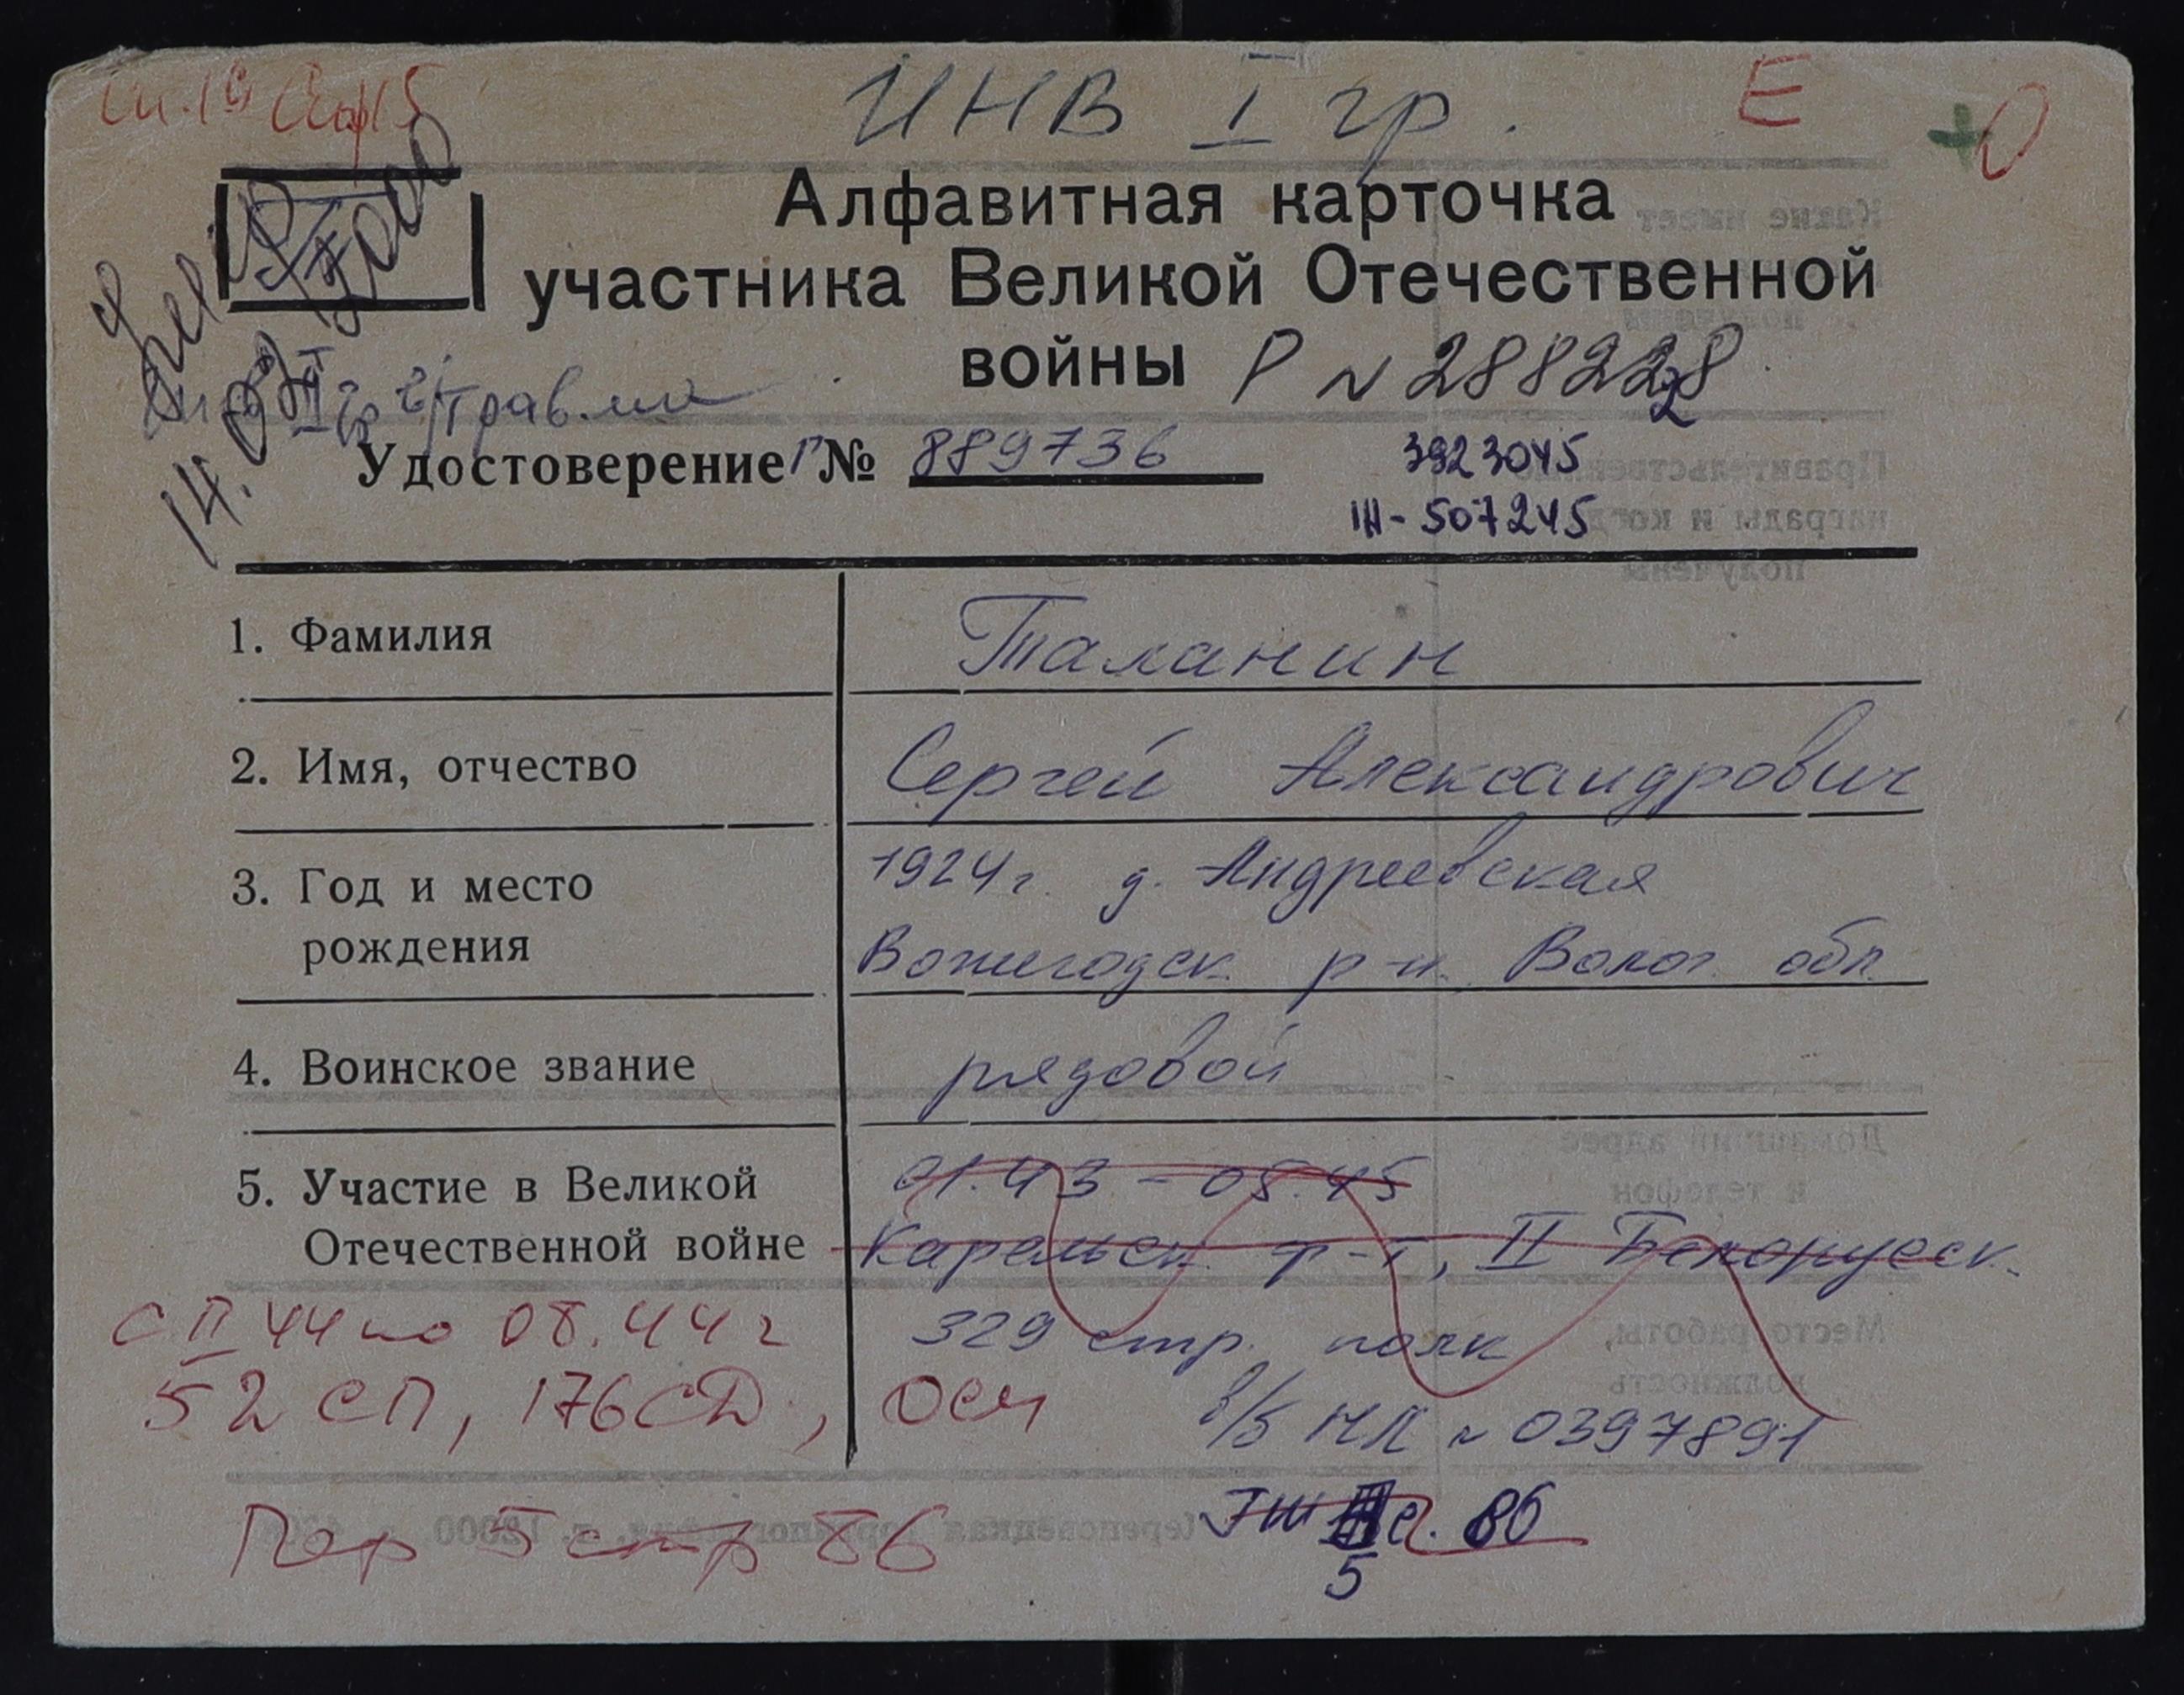 ИНВ I гр.
Е
+0
Алфавитная карточка
участника Великой Отечественной
войны Р N 288228
2
14.
Удостоверение Р № 889736
3923045
III - 507245
1. Фамилия
Таланин
2. Имя, отчество
Сергей Александрович
3. Год и место
рождения
1924г. д. Андреевская
Вожегодск. р-н. Волог. обл.
4. Воинское звание
рядовой
5. Участие в Великой
Отечественной войне
01.43 - 05.45
Карельск. ф-т, II Белорусск.
329 стр. полк
с II 44 по 08.44 г
52 СП, 176 СД, осн
в/б НЛ N 0397891
Пер 5 стр 86
86
5